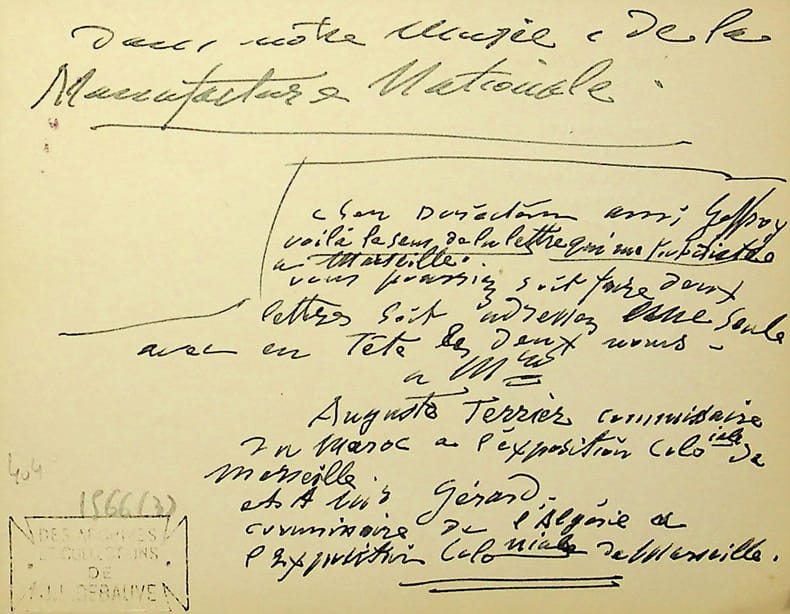 Dans notre Musée de la
Manufacture Nationale.
cher Directeur ami Geffroy
voilà le sens de la lettre qui me
a Marseille.
vous pourriez soit faire deux
lettres soit adresser une seule
avec en Tête les deux noms -
a Mrs
Auguste Terrier commissaire
du Maroc a l'exposition Coloniale de
Marseille
et A Gérard.
commissaire de l'Algérie a
l'Exposition Coloniale de Marseille.
404
1966(3)
DES ARCHIVES
ET COLLECTIONS
DE
J.L. DEBAUVE